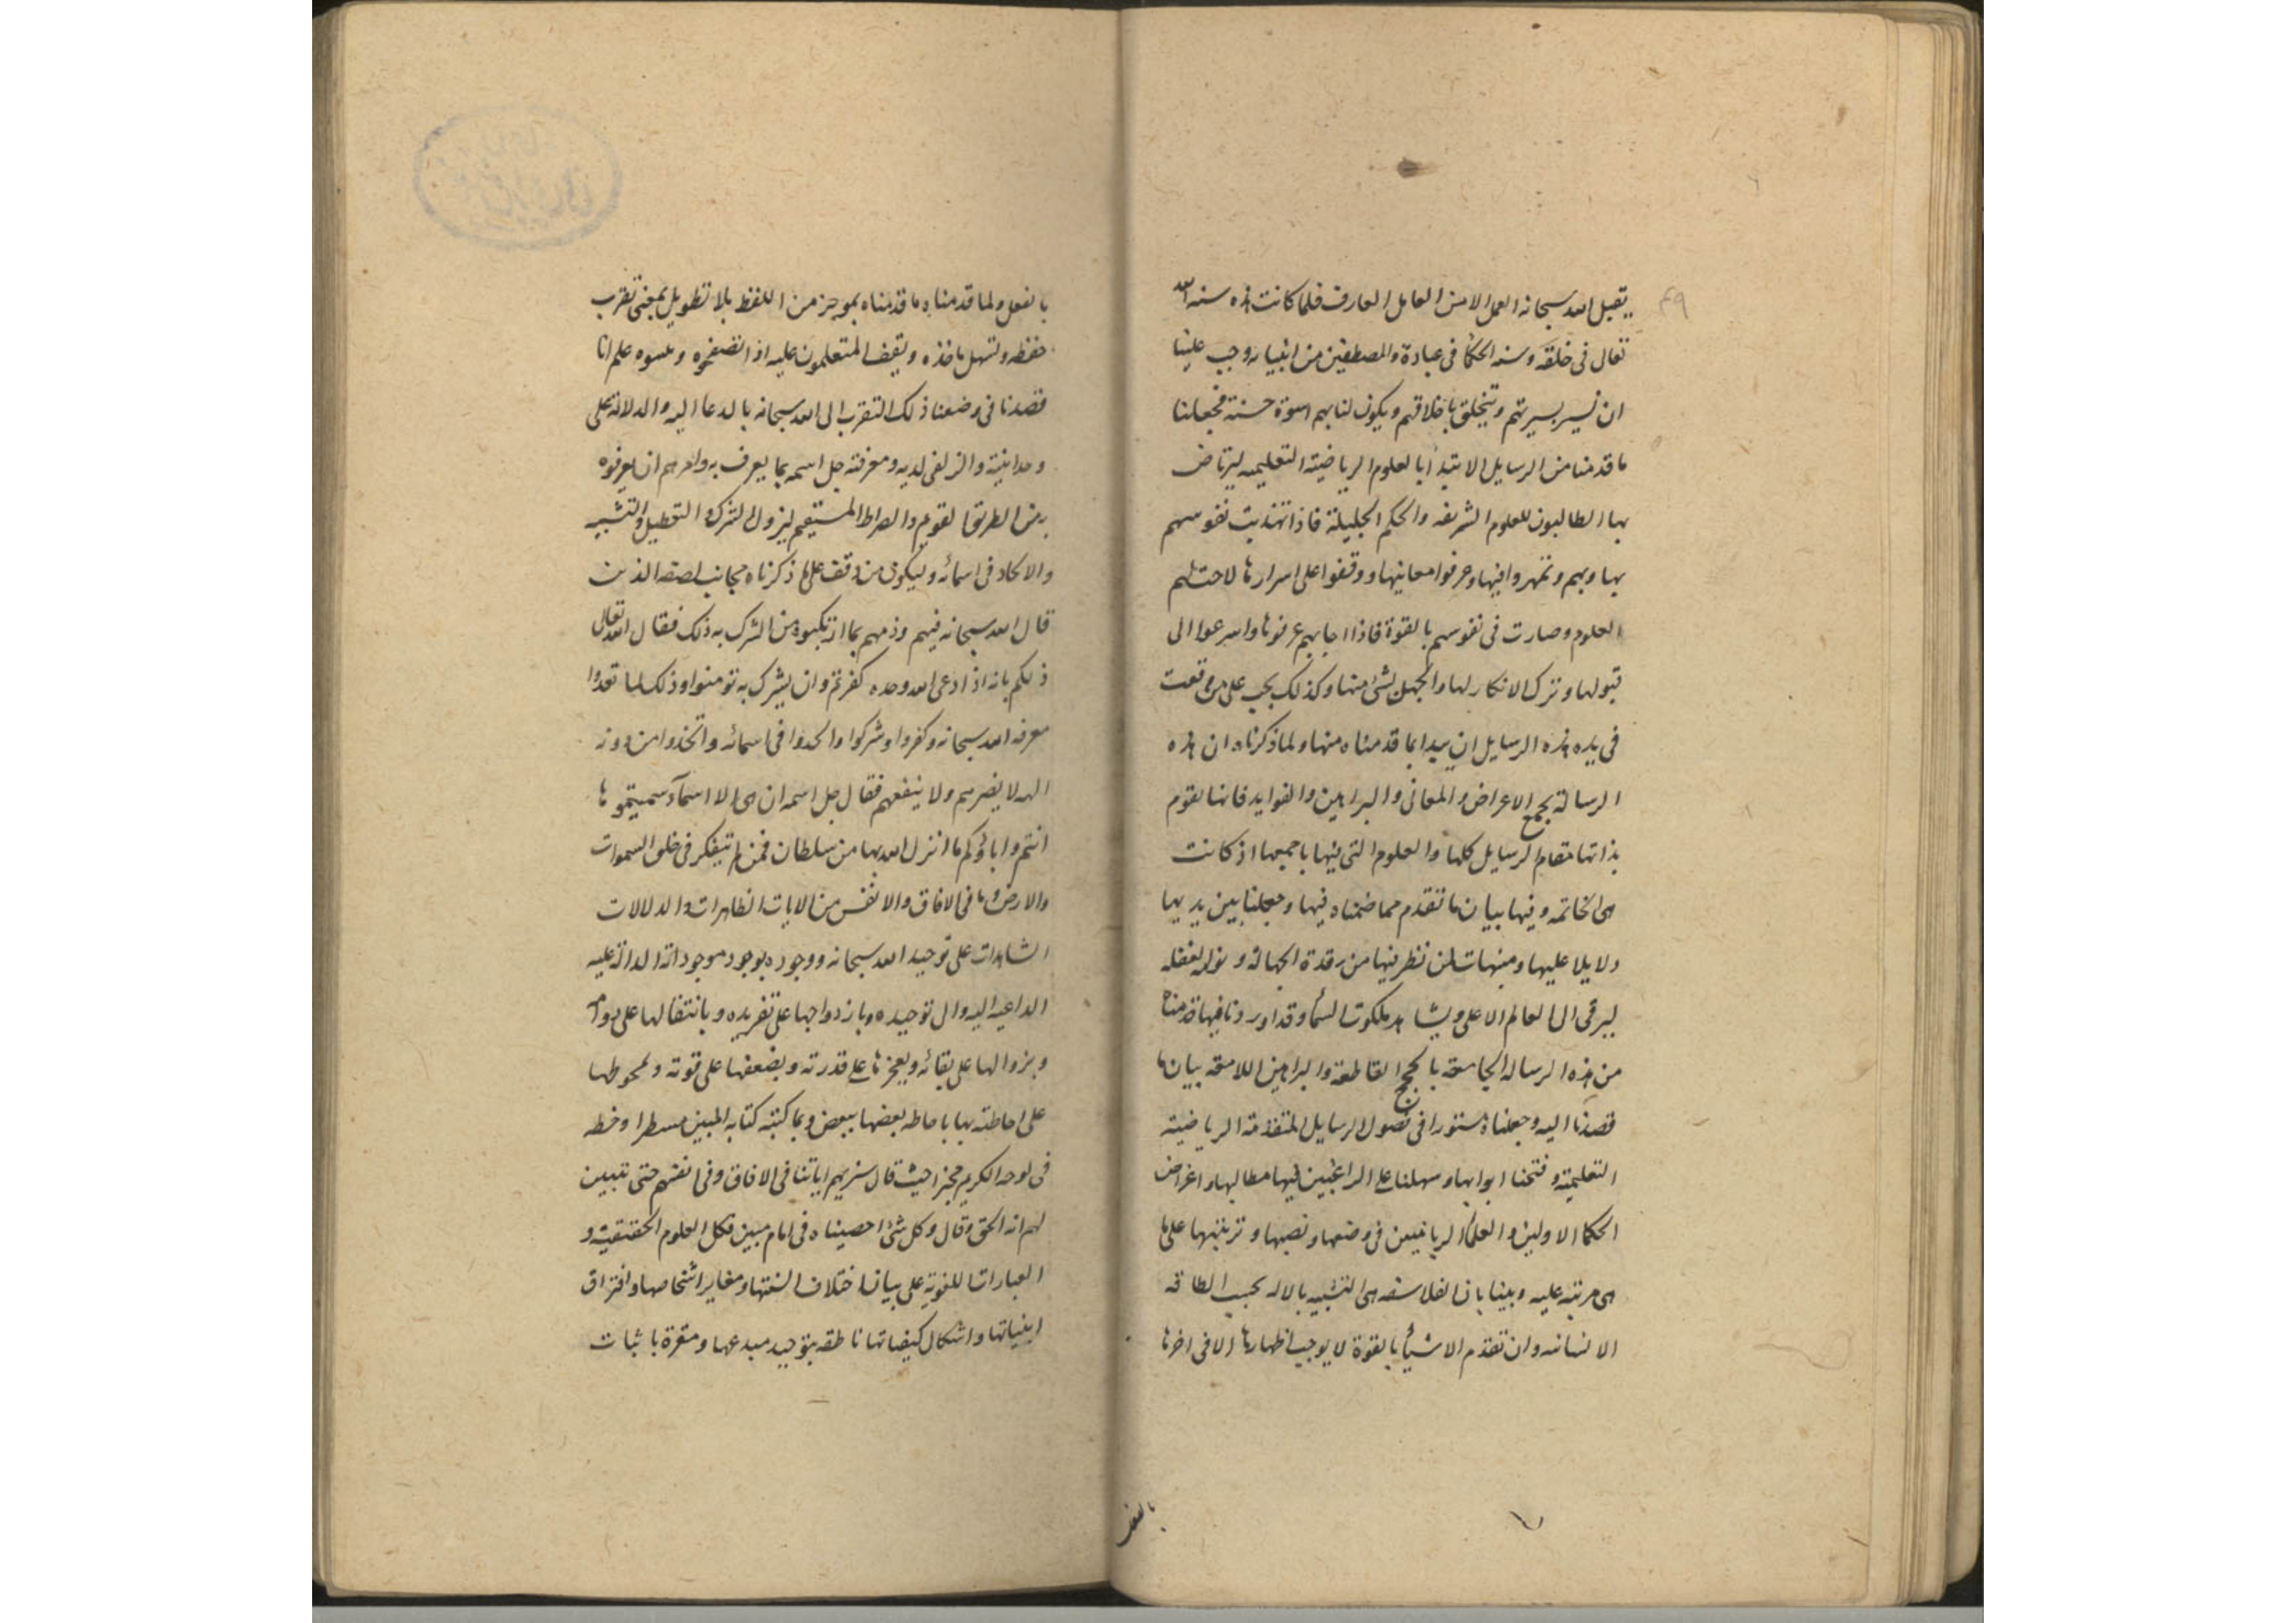 يتقبل الله سبحانه العمل الا من العامل العارف فلما كانت هذه سنه الله
تعالى فى خلقه وسنه الحكما فى عباده والمصطفين من انبيايه وجب علينا
ان نسير بسيرتهم ونتخلق باخلاقهم ويكون لنا بهم اسوة حسنة فجعلنا
ما قدمنا من الرسايل الابتدا بالعلوم الرياضية التعليميه ليرتاض
بها الطالبون للعلوم الشريفه والحكم الجليلة فاذا تهذبت نفوسهم
بها وبهم وتمهروا فيها وعرفوا معانيها ووقفوا على اسرارها لاحت لهم
العلوم وصارت فى نفوسهم بالقوة فاذا اجابهم عرفوها واسرعوا الى
قبولها وترك الانكار لها والجهل بشئ منها وكذلك يجب على من وقعت
فى يده هذه الرسايل ان يبدا بما قدمناه منها ولما ذكرناه ان هذه
الرسالة بجميع الاعراض والمعانى والبراهين والفوايد فانها تقوم
بذاتها مقام الرسايل كلها والعلوم التى فيها باجمعها اذ كانت
هى الخاتمه وفيها بيان ما تقدم مما ضمناه فيها وجعلنا بين يديها
دلايلا عليها ومنبهات لمن نظر فيها من رقدة الجهالة و الغفله
ليرقى الى العالم الاعلى ويشاهد ملكوت السما وقد اوردنا فيها قدمنا
من هذه الرساله الجامعة بالحجج القاطعة والبراهين اللامعة بيان ما
قصدنا اليه وجعلناه مستورا فى فصول الرسايل المتقدمة الرياضية
التعليمية وفتحنا ابوابها وسهلنا على الراغبين فيها مطالبها واغراض
الحكما الاولين والعلما الربانيين فى وضعها ونصبها وترتيبها على ما
هى مرتبة عليه وبينا بان الفلاسفه هى التشبيه بالاله بحسب الطاقه
الانسانيه وان تقدم الاشيأ بالقوة لا يوجب اظهارها الا فى اخرها
بالفعل
٤٩
بالفعل ولما قدمنا ما قدمناه بموجز من اللفظ بلا تطويل بمعنى تقرب
حفظه وتسهل ماخذه ويقف المتعلمون عليه اذا تصفحوه علم انا
قصدنا فى وضعنا ذلك التقرب الى الله سبحانه بالدعا اليه والدلالة على
وحدانيته والزلفى لديه ومعرفته جل اسمه بما يعرف به وامرهم ان يعرفوه
من الطريق القويم والصراط المستقيم ليزول الشرك والتعطيل والتشبيه
والالحاد فى اسمائه وليكون من وقف على ما ذكرناه مجانب لصفه الذين
قال الله سبحانه فيهم وذمهم بما ارتكبوه من الشرك به ذلك فقال الله تعالى
ذلكم بانه اذا دعى الله وحده كفرتم وان يشرك به تومنوا وذلك لما تعدوا
معرفه الله سبحانه وكفروا وشركوا والحدوا فى اسمائه واتخذوا من دونه
الهه لا يضرهم ولا ينفعهم فقال جل اسمه ان هى الا اسمآء سميتموها
انتم واباؤكم ما انزل الله بها من سلطان فمن لم يتفكر فى خلق السموات
والارض وما فى الافاق والانفس من الايات الظاهرات والدلالات
الشاهدات على توحيد الله سبحانه ووجوده بوجود موجوداته الدالة عليه
الداعيه اليه والى توحيده وبازدواجها على تفريده وبانتقالها على دوامه
وبزوالها على بقائه وبعجزها على قدرته وبضعفها على قوته
على احاطته بها باحاطه بعضها ببعض وبما كتبته كتابه المبين مسطرا وخطه
فى لوحه الكريم مخبرا حيث قال سنريهم اياتنا فى الافاق وفى انفسهم حتى يتبين
لهم انه الحق وقال وكل شئ احصيناه فى امام مبين فكل العلوم الحقيقية و
العبارات اللغوية على بيان اختلاف السنتها ومغاير اشخاصها وافتراق
ابنياتها واشكال كيفياتها ناطقه بتوحيد مبدعها ومقرة باثبات